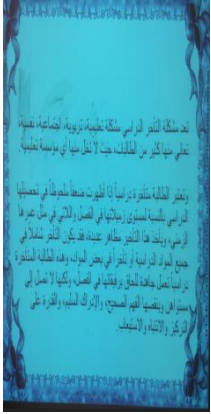 تعد مشكلة التأخر الدراسي مشكلة تعليمية، تربوية، اجتماعية، نفسية،
تعاني منها كثير من الطالبات، حيث لا تخلو منها أي مؤسسة تعليمية.
وتعتبر الطالبة متأخرة دراسياً إذا أظهرت ضعفاً ملحوظاً في تحصيلها
الدراسي بالنسبة لمستوى زميلاتها في الفصل واللاتي في مثل عمرها
الزمني، ويأخذ هذا التأخر مظاهر عديدة، فقد يكون التأخر شاملاً في
جميع المواد الدراسية أو تأخراً في بعض المواد، وهذه الطالبة المتأخرة
دراسياً تعمل جاهدة للحاق برفيقاتها في الفصل، ولكنها لا تصل إلى
مستواهن وينقصها الفهم الصحيح، والإدراك السليم، والقدرة على
التركيز والانتباه والاستيعاب.